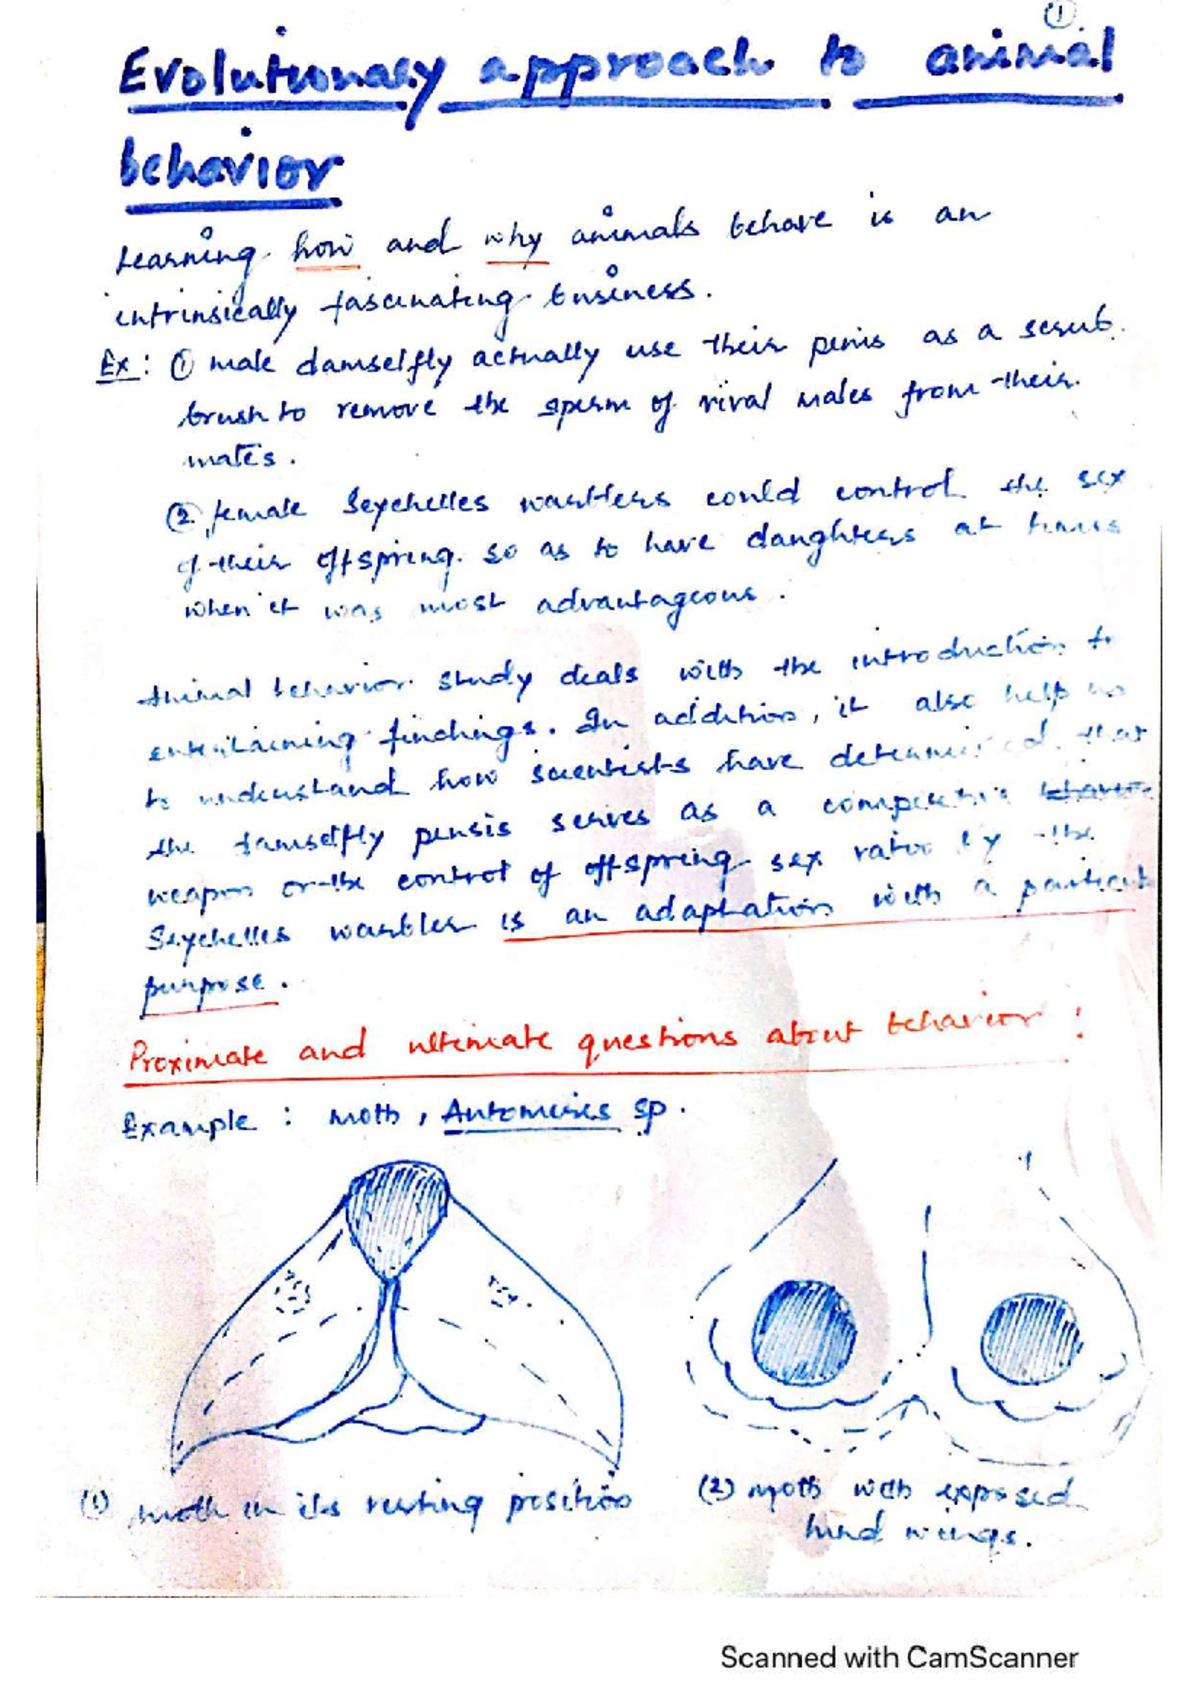 ①
Evolutionary approach to animal
behavior
Learning how and why animals behave is an
intrinsically fascinating business.
Ex: ① male damselfly actually use their penis as a scrub
brush to remove the sperm of rival males from their
mates.
② female Seychelles warblers could control the sex
of their offspring so as to have daughters at times
when it was most advantageous.
Animal behavior study deals with the introduction to
entertaining findings. In addition, it also help us
to understand how scientists have determined that
the damselfly penis serves as a competitive
weapon or the control of offspring sex ratio by the
Seychelles warbler is an adaptation with a particular
purpose.
Proximate and ultimate questions about behavior:
Example: moth, Automeris sp.
(1) moth in its resting position
(2) moth with exposed
hind wings.
Scanned with CamScanner